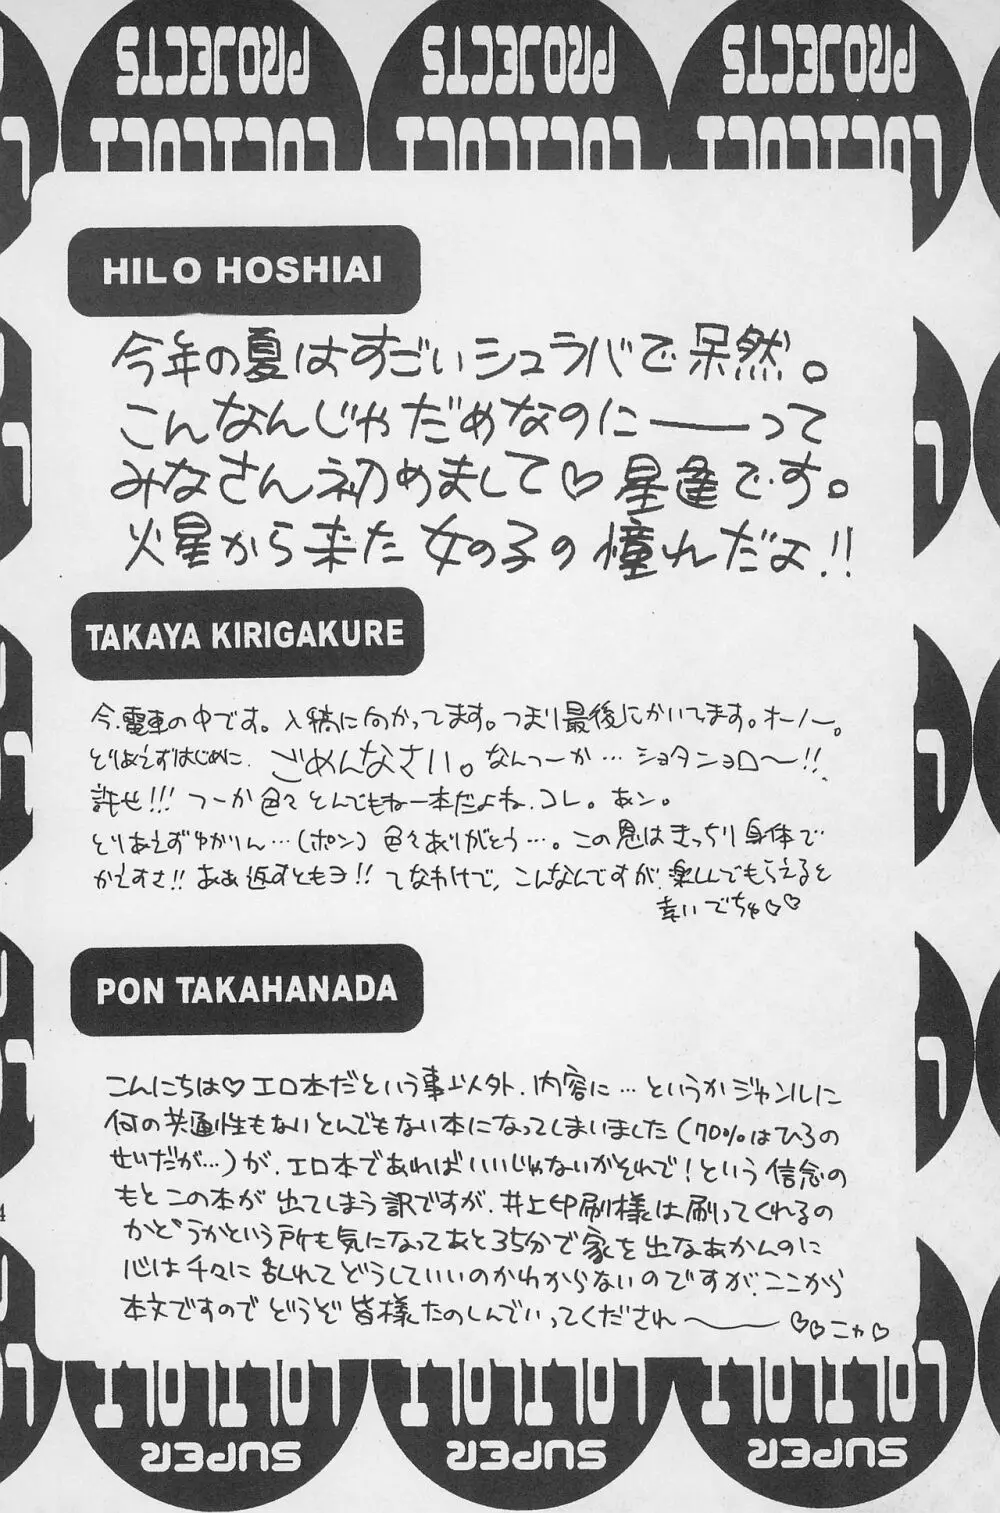 PROJECTS PROJECTS PROJECTS
LOLILOLI LOLILOLI LOLILOLI
HILO HOSHIAI
今年の夏はすごいシュラバで呆然。
こんなんじゃだめなのにーーって
みなさん初めまして♡星逢です。
火星から来た女の子の憧れだよ!!
TAKAYA KIRIGAKURE
今、電車の中です。入稿に向かってます。つまり最後にかいてます。オーノー。
とりあえずはじめに、ごめんなさい。なんつーか…ショタンョロ〜!!
許せ!!!つーか色々とんでもねー本だよね、コレ。あン。
とりあえずゆかりん…(ポン)色々ありがとう…。この恩はきっちり身体で
かえすさ!!ああ返すともヨ!!てなわけで、こんなんですが、楽しんでもらえると
幸いでちゅ♡♡
PON TAKAHANADA
こんにちは♡エロ本だという事以外、内容に…というかジャンルに
何の共通性もないとんでもない本になってしまいました(70%はひろの
せいだが…)が、エロ本であればいいじゃないかそれで!という信念の
もとこの本が出てしまう訳ですが、井上印刷様は刷ってくれるの
かどうかという所も気になってあと35分で家を出なあかんのに
心は千々に乱れてどうしていいのかわからないのですが、ここから
本文ですのでどうぞ皆様たのしんでいってくだされ〜♡♡ニャ♡
4
LOLILOLI LOLILOLI LOLILOLI
SUPER SUPER SUPER